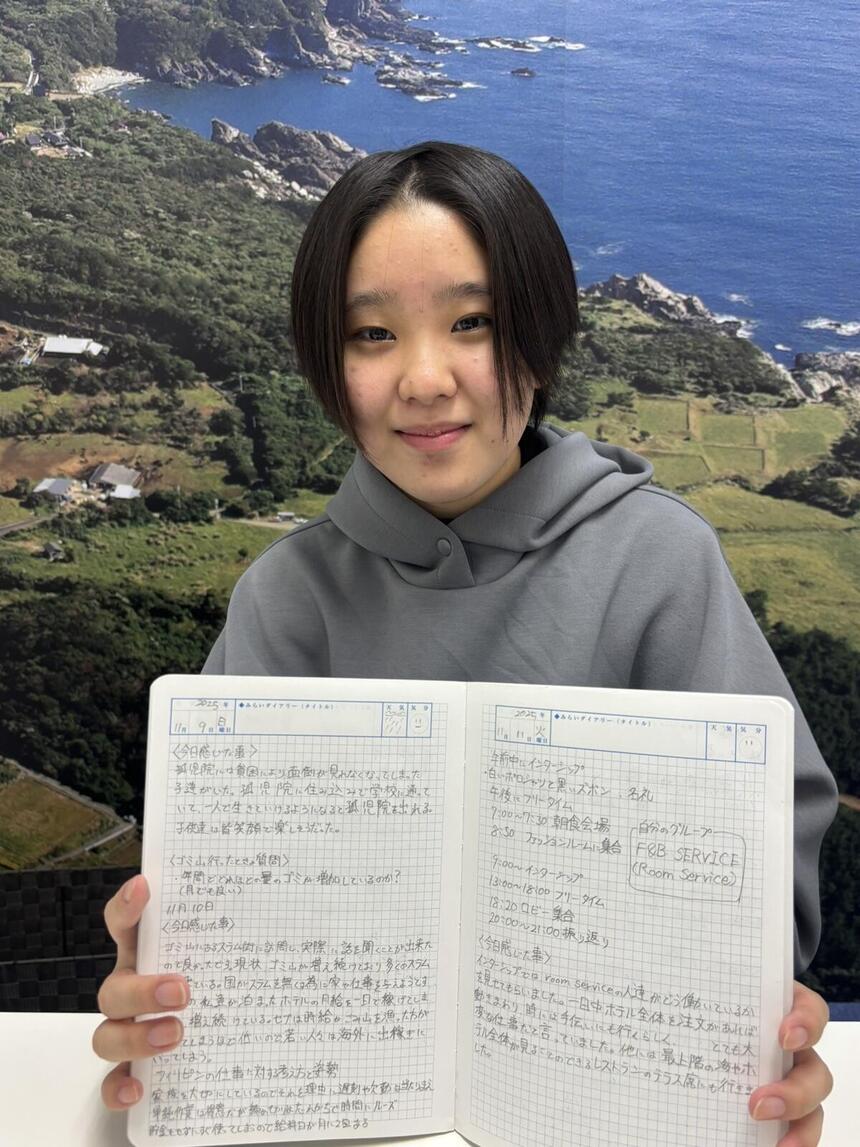 2025年
11月 9日 日曜日
◆みらいダイアリー(タイトル)
天気 気分
〈今日感じた事〉
孤児院には貧困により面倒が見れなくなってしまった
子達がいた。孤児院に住み込みで学校に通って
いて、一人で生きていけるようになると孤児院を出れる。
子供達は皆笑顔で楽しそうだった。
〈ゴミ山行ったときの質問〉
・年間でどれほどの量のゴミが増加しているのか?
(月でも良い)
11月10日
〈今日感じた事〉
ゴミ山にあるスラム街に訪問し、実際に話を聞くことが出来た
ので良かった。でも現状ゴミ山が増え続けており多くのスラム
ている。国がスラムを無くす為に家や仕事を与えようとす
の私達が泊まったホテルの月給を一日で稼げてしま
増え続けている。セブは時給がごみ山を漁った方が
てしまうほど低いので若い人々は海外に出稼ぎに
いってしまう。
フィリピンの仕事に対する考え方と姿勢
家族を大切にしているのでそれを理由に遅刻や欠勤は当たりまえ
単純作業は得意だが 時間にルーズ
貯金もせずにすぐ使ってしまうので給料日が月に2回ある
2025年
11月 11日 火曜日
◆みらいダイアリー(タイトル)
天気 気分
午前中にインターンシップ
・白いポロシャツと黒いズボン、名札
午後にフリータイム
7:00〜7:30 朝食会場
8:50 ファッションルームに集合
自分のグループ
F&B SERVICE
(Room Service)
9:00〜インターンシップ
13:00〜18:00 フリータイム
18:20 ロビー集合
20:00〜21:00 振り返り
〈今日感じた事〉
インターンシップではroom serviceの人達がどう働いているか
を見せてもらいました。一日中ホテル全体を注文があれば
動きまわり、時には手伝いにも行くらしく、とても大
変な仕事だと言っていました。他には最上階の海やホ
テル全体が見ることのできるレストランのテラス席にも行きま
した。